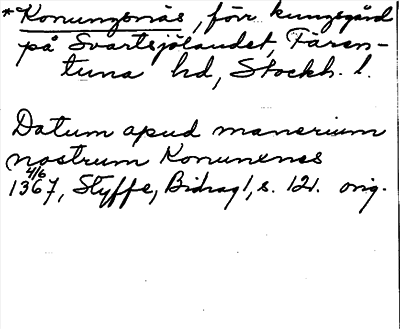 *Konungsnäs, förr kungsgård
på Svartsjölandet, Fären-
tuna hd, Stockh. l.
Datum apud manerium
nostrum Konunxnes
4/6
1367, Styffe, Bidrag 1, s. 121. orig.